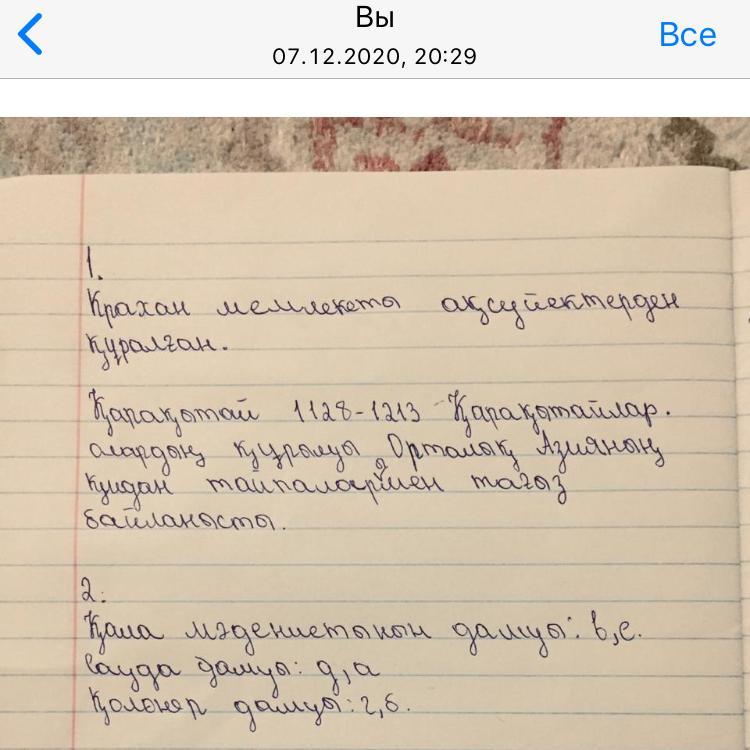 Вы
07.12.2020, 20:29
Все
1.
Крахан мемлекеты ақсүйектерден
құралған.
Қарақытай 1128-1213 Қарақытайлар.
алардың құрылуы Орталық Азияның
қидан тайпалармен тағыз
байланысты.
2.
Қала мәдениетының дамуы: в,е.
сауда дамуы: д,а
Қолөнер дамуы: г,б.